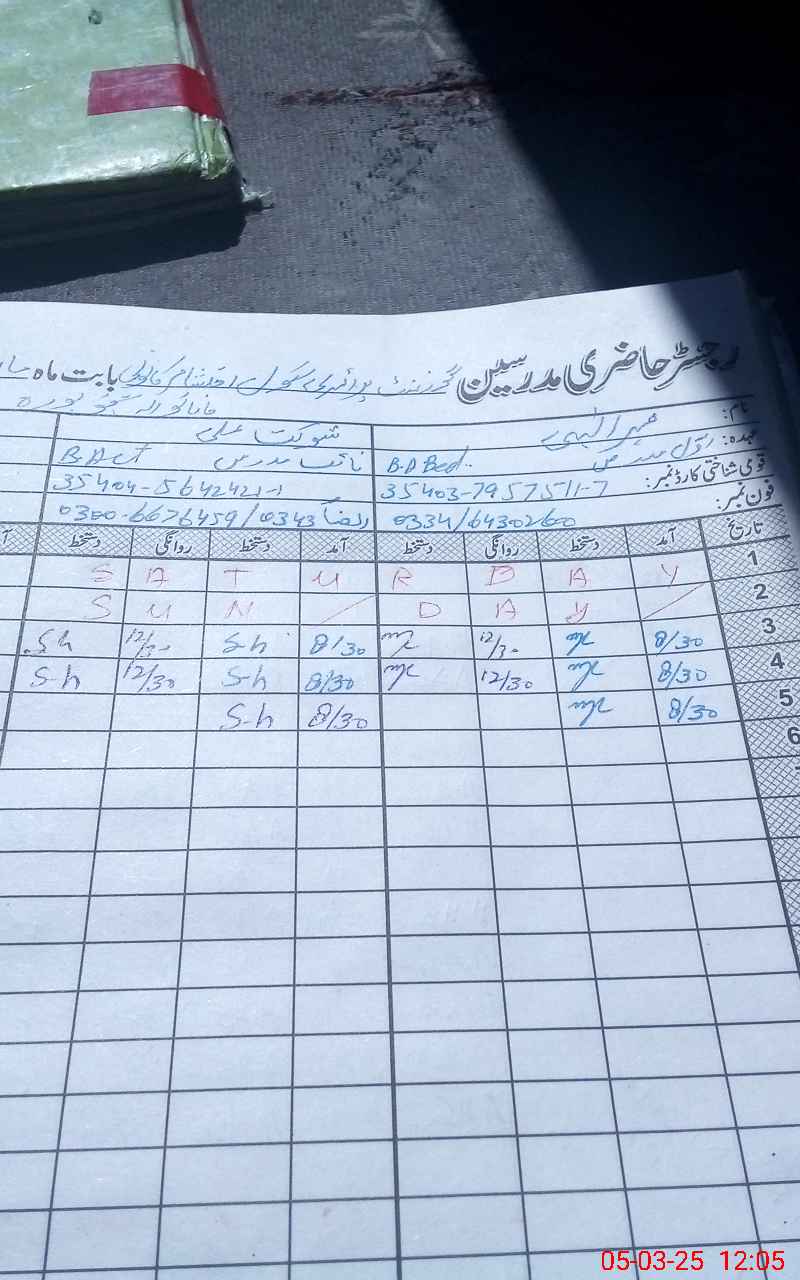 رجسٹر حاضری مدرسین گورنمنٹ پرائمری سکول بابت ماہ
نام: شوکت علی
عہدہ: B.A Bed. نائب مدرس B.A ct
قومی شناختی کارڈ نمبر: 35403-7957511-7 35404-5642421-1
فون نمبر: 0334/6430260 0300-6676459/0343
تاریخ آمد دستخط روانگی دستخط آمد دستخط روانگی دستخط
1 S A T U R D A Y
2 S U N / D A Y /
3 8/30 12/30 8/30 S-h 12/30 S-h
4 8/30 12/30 8/30 S-h 12/30 S-h
5 8/30 8/30 S-h
6
05-03-25 12:05